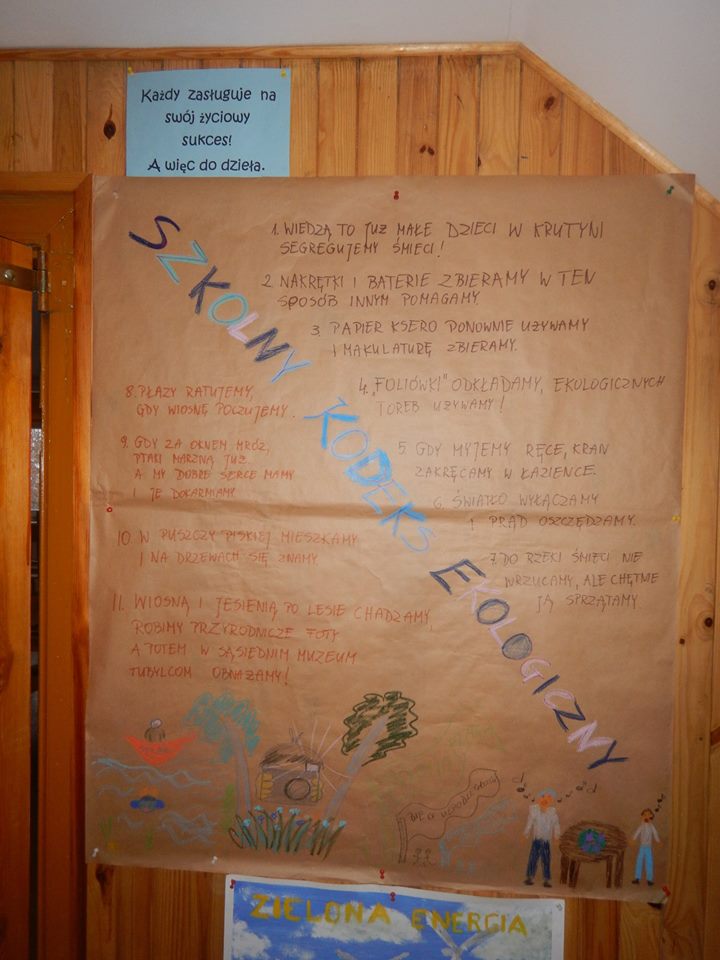 Każdy zasługuje na
swój życiowy
sukces!
A więc do dzieła.
SZKOLNY KODEKS EKOLOGICZNY
1. WIEDZĄ TO JUŻ MAŁE DZIECI W KRUTYNI
SEGREGUJEMY ŚMIECI!
2. NAKRĘTKI I BATERIE ZBIERAMY W TEN
SPOSÓB INNYM POMAGAMY.
3. PAPIER KSERO PONOWNIE UŻYWAMY
I MAKULATURĘ ZBIERAMY.
4. „FOLIÓWKI" ODKŁADAMY, EKOLOGICZNYCH
TOREB UŻYWAMY!
5. GDY MYJEMY RĘCE, KRAN
ZAKRĘCAMY W ŁAZIENCE.
6. ŚWIATŁO WYŁĄCZAMY
I PRĄD OSZCZĘDZAMY.
7. DO RZEKI ŚMIECI NIE
WRZUCAMY, ALE CHĘTNIE
JĄ SPRZĄTAMY.
8. PŁAZY RATUJEMY,
GDY WIOSNĘ POCZUJEMY.
9. GDY ZA OKNEM MRÓZ,
PTAKI MARZNĄ JUŻ.
A MY DOBRE SERCE MAMY
I JE DOKARMIAMY
10. W PUSZCZY PISKIEJ MIESZKAMY
I NA DRZEWACH SIĘ ZNAMY.
11. WIOSNĄ I JESIENIĄ PO LESIE CHADZAMY,
ROBIMY PRZYRODNICZE FOTY
A POTEM W SĄSIEDNIM MUZEUM
TUBYLCOM OBNAŻAMY!
ZIELONA ENERGIA